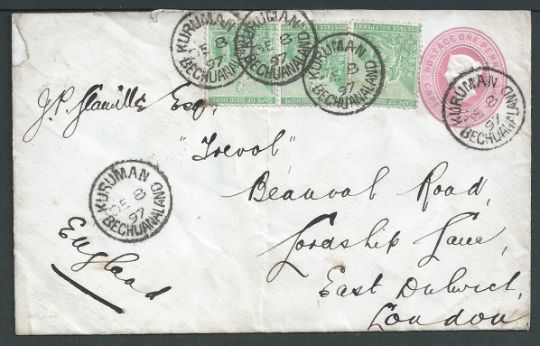 KURUMAN
8
97
BECHUANALAND
KURUMAN
8
97
BECHUANALAND
KURUMAN
8
97
BECHUANALAND
POSTAGE ONE PENNY
KURUMAN
8
97
BECHUANALAND
CAPE OF GOOD HOPE
CAPE OF GOOD HOPE
CAPE OF GOOD HOPE
J.P. Glanville Esq.,
"Trevol"
Beauval Road,
Lordship Lane,
East Dulwich,
London
KURUMAN
8
97
BECHUANALAND
England